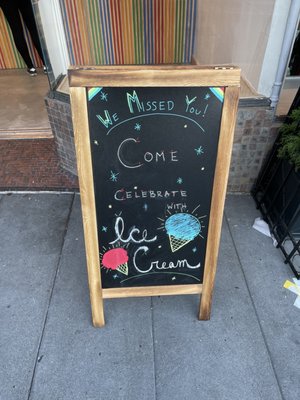 We Missed You!
Come
Celebrate
With
Ice
Cream